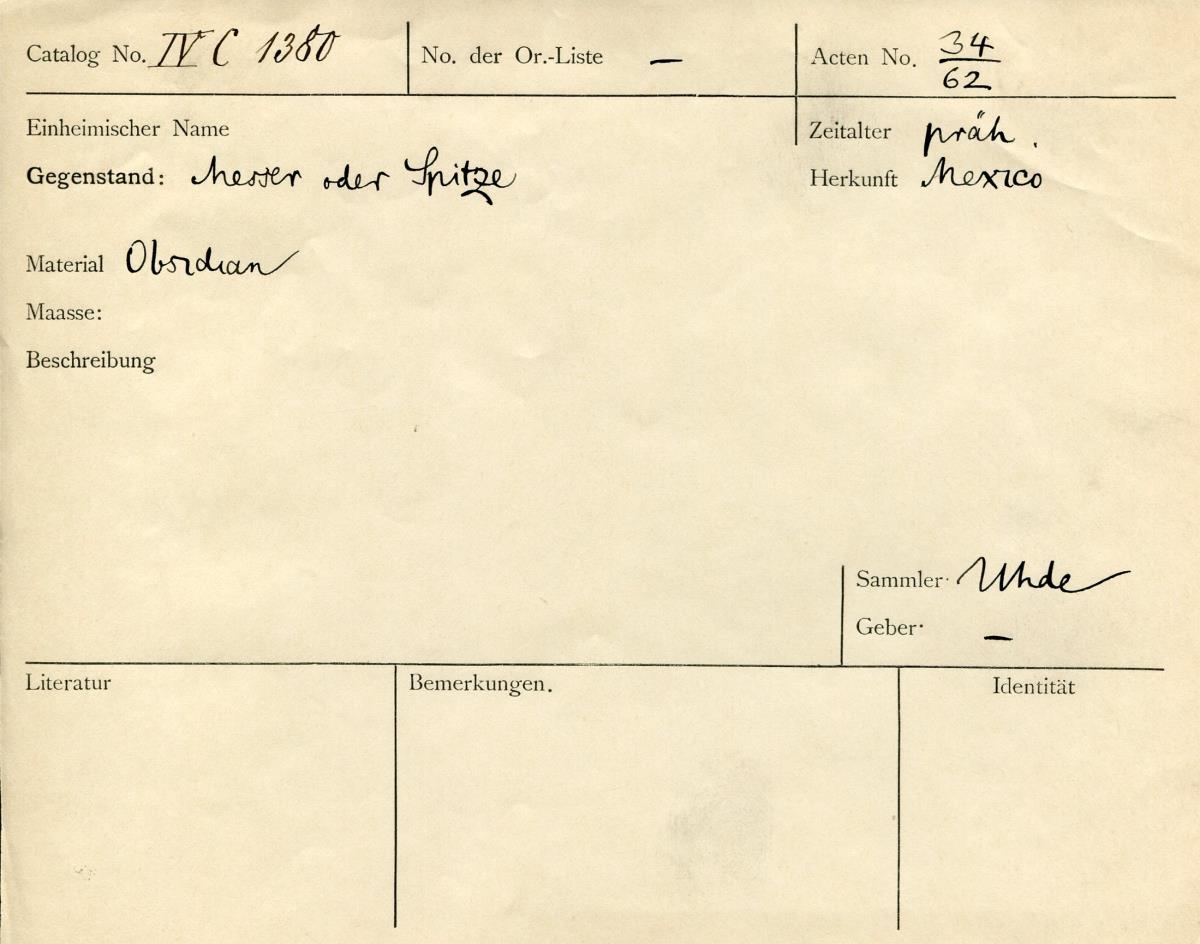 Catalog No. IV C 1380 No. der Or.-Liste — Acten No. 34/62
Einheimischer Name Zeitalter präh.
Gegenstand: Messer oder Spitze Herkunft Mexico
Material Obsidian
Maasse:
Beschreibung
Sammler· Uhde
Geber· —
Literatur Bemerkungen. Identität